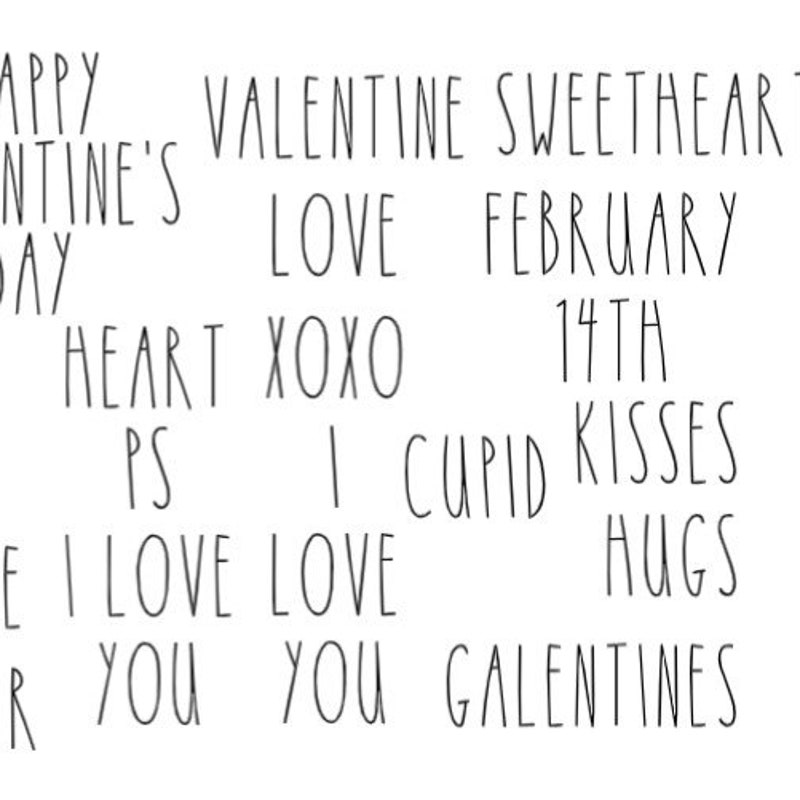 APPY
NTINE'S
DAY
VALENTINE
SWEETHEART
LOVE
FEBRUARY
14TH
HEART
XOXO
PS
I LOVE
YOU
I
LOVE
YOU
CUPID
KISSES
HUGS
GALENTINES
E
R